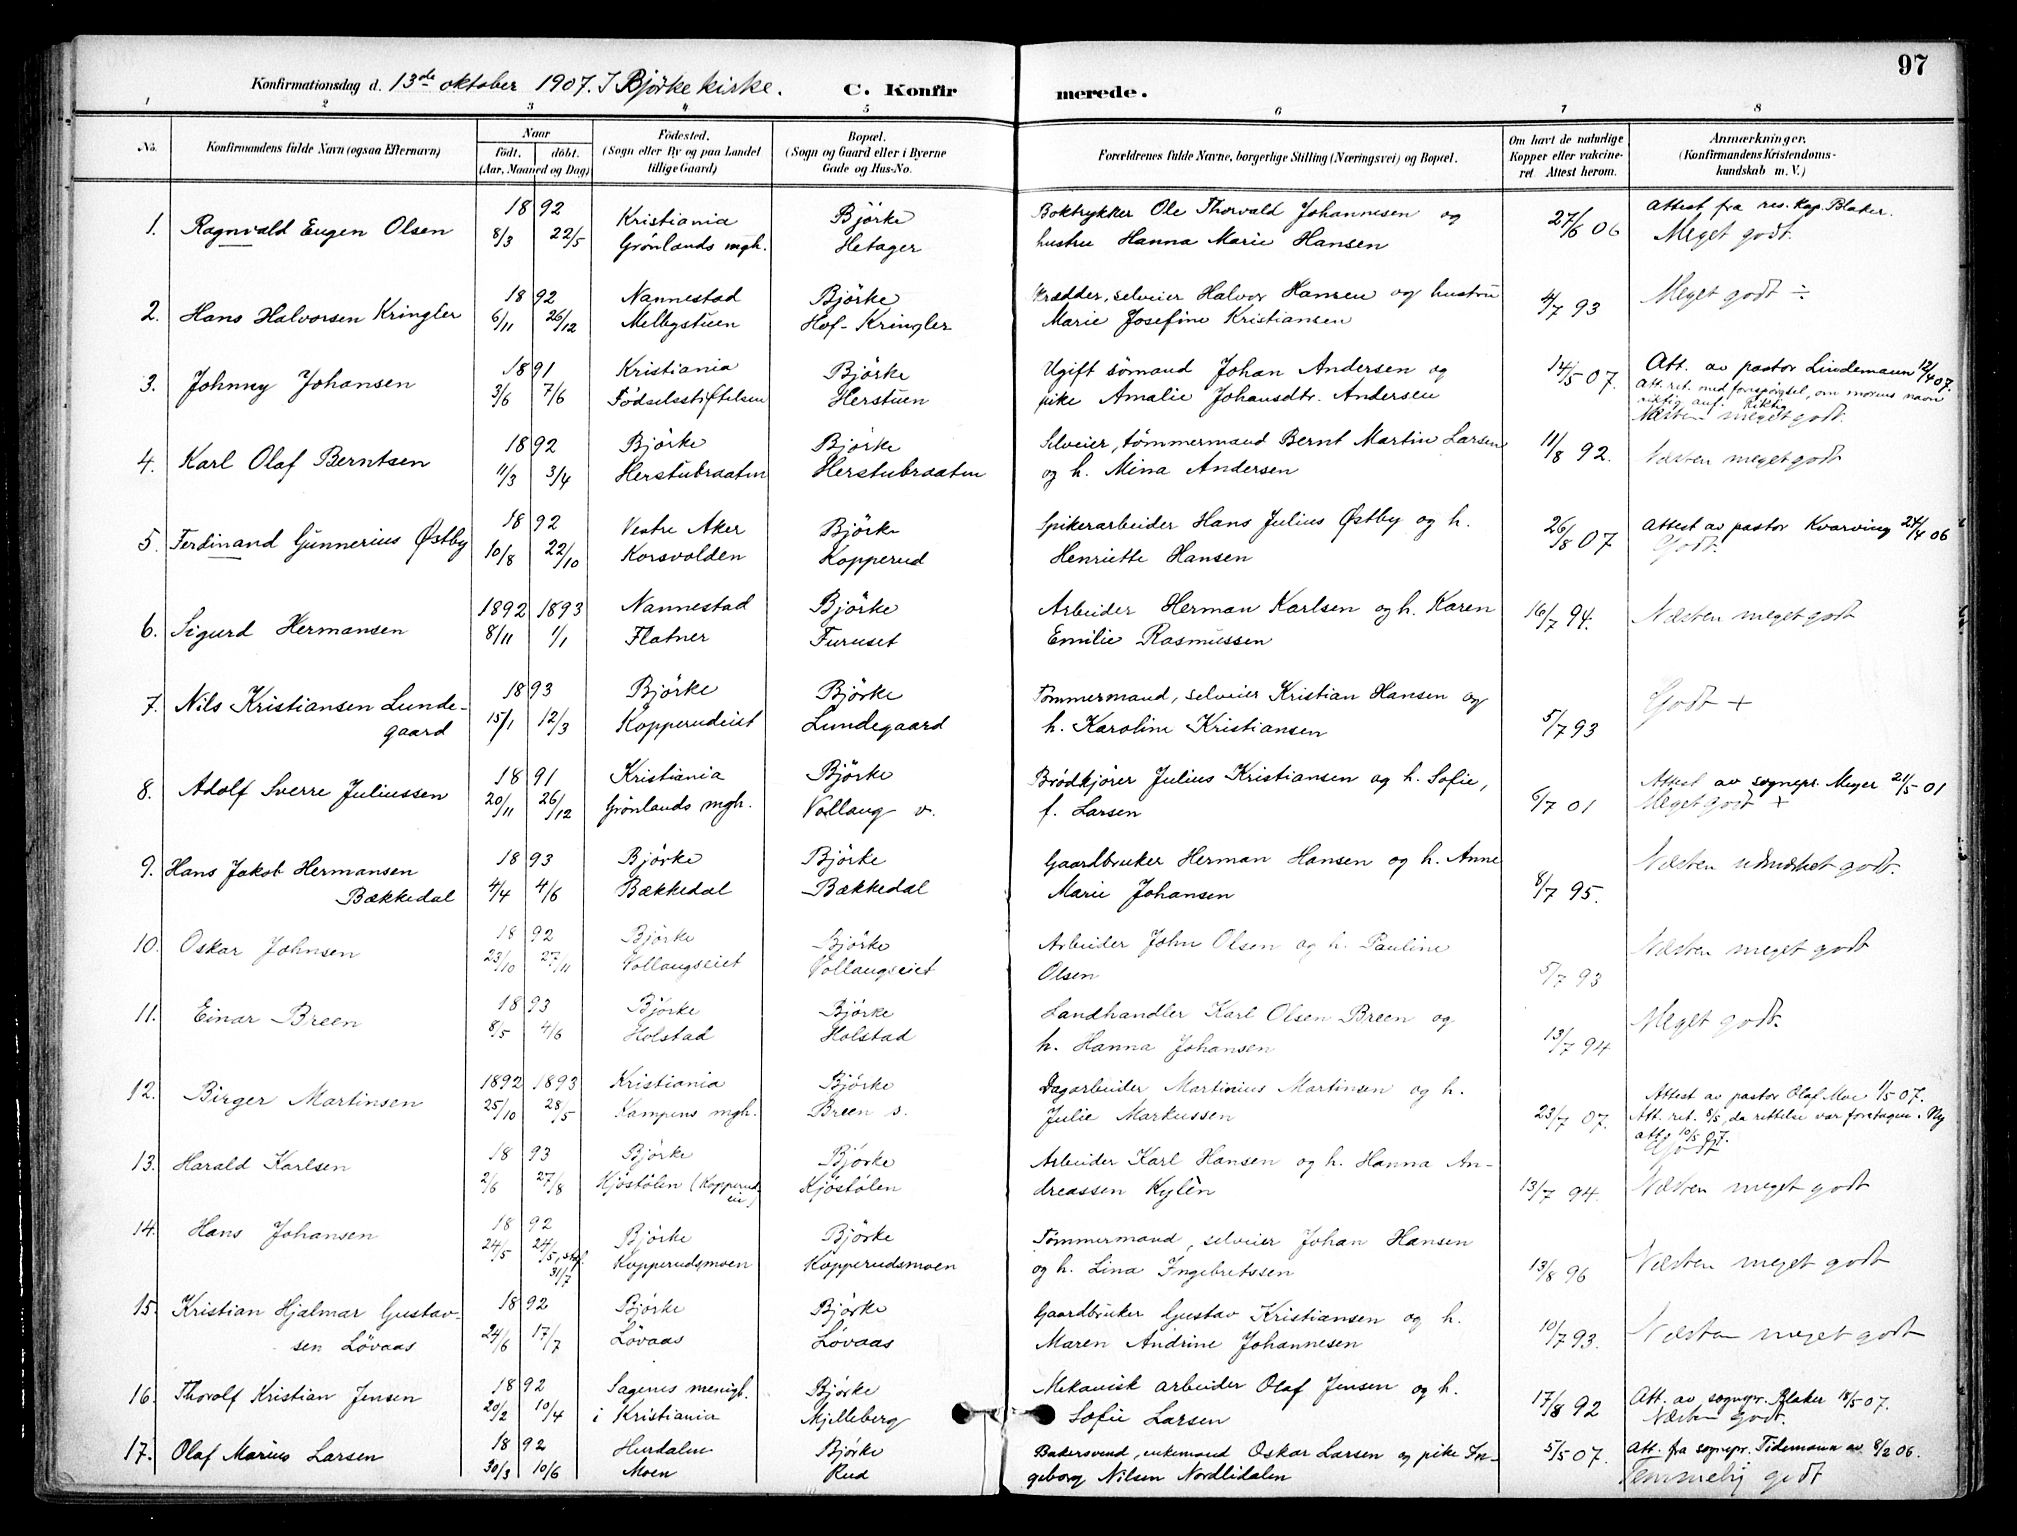 97
Konfirmationsdag d. 13de oktober 1907. I Bjørke kirke. C. Konfirmerede.
1 2 3 4 5 6 7 8
No. Konfirmandens fulde Navn (ogsaa Efternavn) Naar födt. döbt. (Aar, Maaned og Dag) Födested. (Sogn eller By og paa Landet tillige Gaard) Bopæl. (Sogn og Gaard eller i Byerne Gade og Hus-No. Forældrenes fulde Navne, borgerlige Stilling (Næringsvei) og Bopæl. Om havt de naturlige Kopper eller vakcineret. Attest herom. Anmærkninger. (Konfirmandens Kristendomskundskab m. V.)
1. Ragnvald Eugen Olsen 1892 8/3 22/5 Kristiania Grønlands mgh. Bjørke Hetager Boktrykker Ole Thorvald Johannesen og
hustru Hanna Marie Hansen 27/6 06 Attest fra res. kap. Blaker. Meget godt.
2. Hans Halvorsen Kringler 1892 6/11 26/12 Nannestad Melbystuen Bjørke Hof-Kringler Skrædder, selveier Halvor Hansen og hustru
Marie Josefine Kristiansen 4/7 93 Meget godt ÷
3. Johnny Johansen 1891 3/6 7/6 Kristiania Fødselsstiftelsen Bjørke Herstuen Ugift sømand Johan Andersen og
pike Amalie Johansdtr. Andersen 14/5 07. Att. av pastor Lindemann 12/4 07.
Att. ret. med forespørgsel, om morens navn
riktig anf. Riktig
Næsten meget godt.
4. Karl Olaf Berntsen 1892 11/3 3/4 Bjørke Herstubraaten Bjørke Herstubraaten Selveier, tømmermand Bernt Martin Larsen
og h. Mina Andersen 11/8 92. Næsten meget godt
5. Ferdinand Gunnerius Østby 1892 10/8 22/10 Vestre Aker Korsvolden Bjørke Kopperud Spikerarbeider Hans Julius Østby og h.
Henriette Hansen 26/8 07 Attest av pastor Kvarving 24/4 06
Godt.
6. Sigurd Hermansen 1892 1893 8/11 1/1 Nannestad Flatner Bjørke Furuset Arbeider Herman Karlsen og h. Karen
Emilie Rasmussen 16/7 94. Næsten meget godt
7. Nils Kristiansen Lundegaard 1893 15/1 12/3 Bjørke Kopperudeiet Bjørke Lundegaard Tømmermand, selveier Kristian Hansen og
h. Karoline Kristiansen 5/7 93 Godt +
8. Adolf Sverre Juliussen 1891 20/11 26/12 Kristiania Grønlands mgh. Bjørke Vollaug v. Brødkjører Julius Kristiansen og h. Sofie,
f. Larsen 6/7 01 Attest av sognepr. Meyer 21/5 01
Meget godt +
9. Hans Jakob Hermansen Bækkedal 1893 4/4 4/6 Bjørke Bækkedal Bjørke Bækkedal Gaardbruker Herman Hansen og h. Anne
Marie Johansen 8/7 95. Næsten udmærket godt.
10. Oskar Johnsen 1892 23/10 27/11 Bjørke Vollaugseiet Bjørke Vollaugseiet Arbeider John Olsen og h. Pauline
Olsen 5/7 93 Næsten meget godt
11. Einar Breen 1893 8/5 4/6 Bjørke Holstad Bjørke Holstad Landhandler Karl Olsen Breen og
h. Hanna Johansen 13/7 94 Meget godt.
12. Birger Martinsen 1892 1893 25/10 28/5 Kristiania Kampens mgh. Bjørke Breen s. Dagarbeider Martinius Martinsen og h.
Julie Markussen 23/7 07. Attest av pastor Olaf Moe 1/5 07.
Att. ret. 8/5, da rettelse var foretagen. Ny
att. 10/5 07.
Godt
13. Harald Karlsen 1893 2/6 27/8 Bjørke Kjøstølen (Kopperudei) Bjørke Kjøstølen Arbeider Karl Hansen og h. Hanna Andreassen Kylén 13/7 94. Næsten meget godt
14. Hans Johansen 1892 24/5 24/5, 31/7 Bjørke Kopperudsmoen Bjørke Kopperudsmoen Tømmermand, selveier Johan Hansen
og h. Lina Ingebretssen 13/8 96 Næsten meget godt
15. Kristian Hjalmar Gustavsen Løvaas 1892 24/6 17/7 Bjørke Løvaas Bjørke Løvaas Gaardbruker Gustav Kristiansen og h.
Maren Andrine Johannesen 10/7 93. Næsten meget godt
16. Thorolf Kristian Jensen 1892 20/2 10/4 Sagenes menigh. i Kristiania Bjørke Mjelleberg Mekanisk arbeider Olaf Jensen og h.
Sofie Larsen 17/8 92 Att. av sognepr. Blaker 18/5 07.
Næsten godt.
17. Olaf Marius Larsen 1892 30/3 10/6 Hurdalen Moen Bjørke Rud Bakersvend, enkemand Oskar Larsen og pike Ingeborg Nilsen Nordlidalen 5/5 07. Att. fra sognepr. Tidemann av 8/2 06.
Temmelig godt